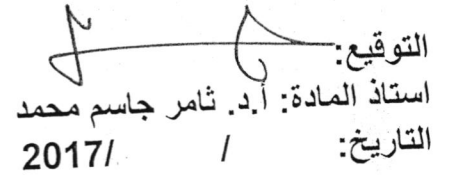 التوقيع:
استاذ المادة: أ.د. ثامر جاسم محمد
التاريخ: / /2017